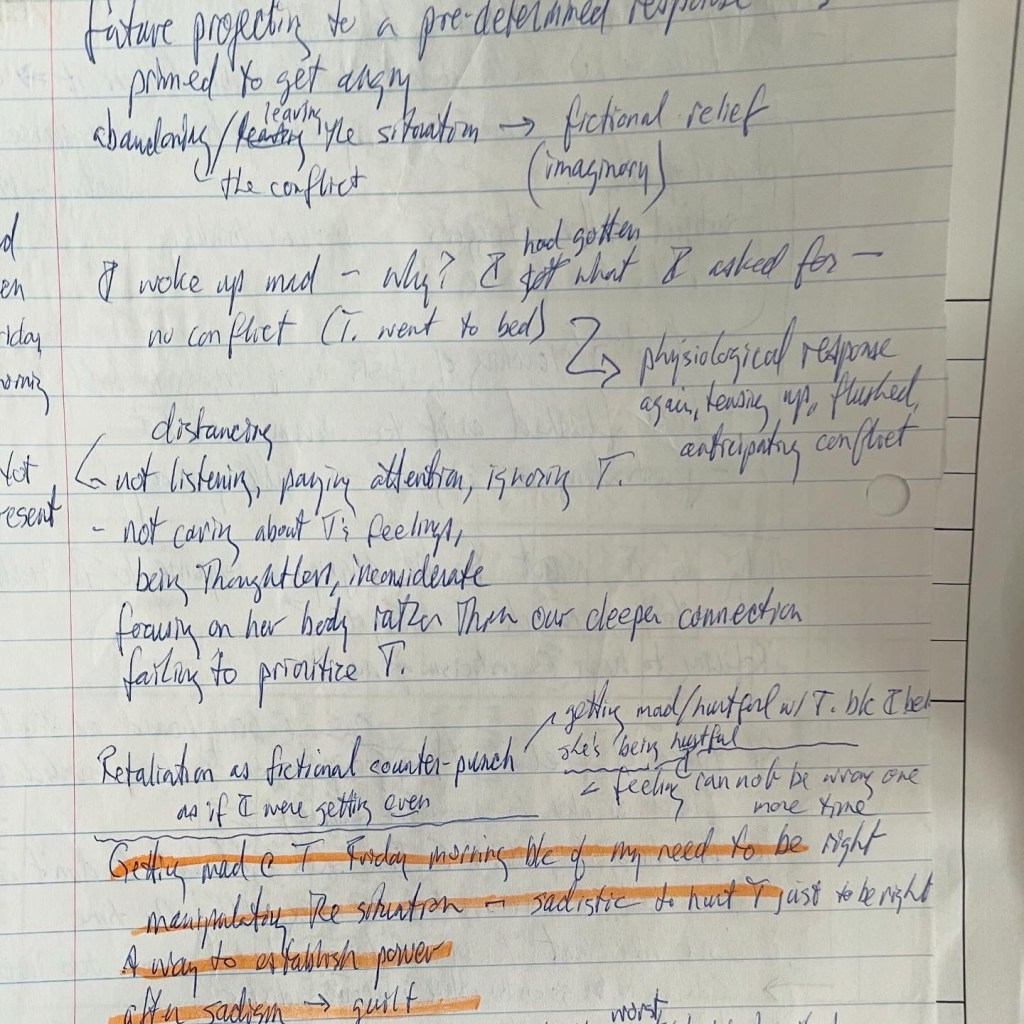 future projecting to a pre-determined response
primed to get angry
abandoning/leaving the situation → fictional relief
the conflict (imaginary)
had gotten
I woke up mad - why? I got what I asked for -
no conflict (T. went to bed)
physiological response
again, tensing up, flushed,
anticipating conflict
distancing
not listening, paying attention, ignoring T.
- not caring about T's feelings,
being thoughtless, inconsiderate
focusing on her body rather than our deeper connection
failing to prioritize T.
getting mad/hurtful w/ T. b/c I
she's being hurtful
Retaliation as fictional counter-punch
feeling cannot be wrong one
more time
as if I were getting even
Getting mad @ T Friday morning b/c of my need to be right
manipulating the situation - sadistic to hurt T just to be right
A way to establish power
after sadism → guilt
worst